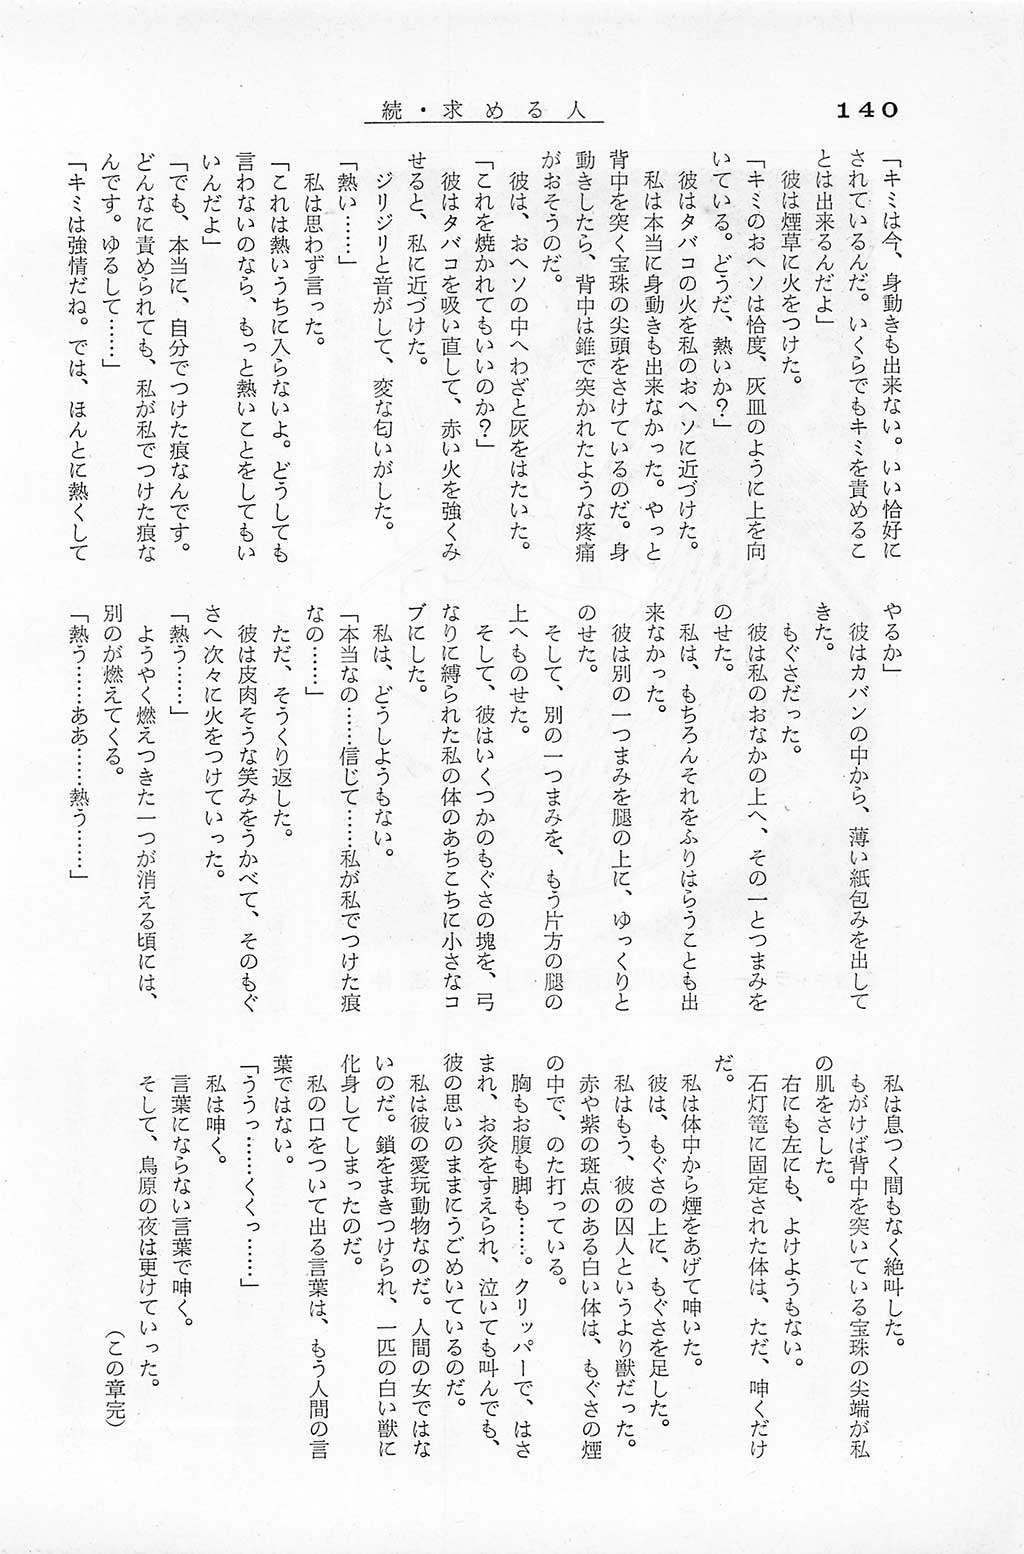 140
続・求める人
「キミは今、身動きも出来ない。いい恰好に
されているんだ。いくらでもキミを責めるこ
とは出来るんだよ」
彼は煙草に火をつけた。
「キミのおヘソは恰度、灰皿のように上を向
いている。どうだ、熱いか？」
彼はタバコの火を私のおヘソに近づけた。
私は本当に身動きも出来なかった。やっと
背中を突く宝珠の尖頭をさけているのだ。身
動きしたら、背中は錐で突かれたような疼痛
がおそうのだ。
彼は、おヘソの中へわざと灰をはたいた。
「これを焼かれてもいいのか？」
彼はタバコを吸い直して、赤い火を強くみ
せると、私に近づけた。
ジリジリと音がして、変な匂いがした。
「熱い……」
私は思わず言った。
「これは熱いうちに入らないよ。どうしても
言わないのなら、もっと熱いことをしてもい
いんだよ」
「でも、本当に、自分でつけた痕なんです。
どんなに責められても、私が私でつけた痕な
んです。ゆるして……」
「キミは強情だね。では、ほんとに熱くして
やるか」
彼はカバンの中から、薄い紙包みを出して
きた。
もぐさだった。
彼は私のおなかの上へ、その一とつまみを
のせた。
私は、もちろんそれをふりはらうことも出
来なかった。
彼は別の一つまみを腿の上に、ゆっくりと
のせた。
そして、別の一つまみを、もう片方の腿の
上へものせた。
そして、彼はいくつかのもぐさの塊を、弓
なりに縛られた私の体のあちこちに小さなコ
ブにした。
私は、どうしようもない。
「本当なの……信じて……私が私でつけた痕
なの……」
ただ、そうくり返した。
彼は皮肉そうな笑みをうかべて、そのもぐ
さへ次々に火をつけていった。
「熱う……」
ようやく燃えつきた一つが消える頃には、
別のが燃えてくる。
「熱う……ああ……熱う……」
私は息つく間もなく絶叫した。
もがけば背中を突いている宝珠の尖端が私
の肌をさした。
右にも左にも、よけようもない。
石灯篭に固定された体は、ただ、呻くだけ
だ。
私は体中から煙をあげて呻いた。
彼は、もぐさの上に、もぐさを足した。
私はもう、彼の囚人というより獣だった。
赤や紫の斑点のある白い体は、もぐさの煙
の中で、のた打っている。
胸もお腹も脚も……。クリッパーで、はさ
まれ、お灸をすえられ、泣いても叫んでも、
彼の思いのままにうごめいているのだ。
私は彼の愛玩動物なのだ。人間の女ではな
いのだ。鎖をまきつけられ、一匹の白い獣に
化身してしまったのだ。
私の口をついて出る言葉は、もう人間の言
葉ではない。
「ううっ……くくっ……」
私は呻く。
言葉にならない言葉で呻く。
そして、鳥原の夜は更けていった。
（この章完）